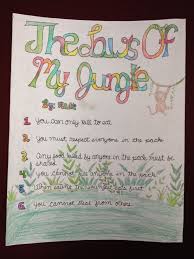 The Laws Of
My Jungle
By:
1. You can only kill to eat
2. You must respect everyone in the pack
3. Any food killed by anyone in the pack must be shared
4. You cannot anyone in the pack
5. When eating the youngest eats first
6. You cannot steal from others.